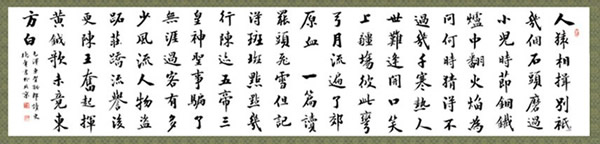 人猿相揖别祇
幾個石頭磨過
小兒時節銅鐵
爐中翻火焰為
問何時猜得不
過幾千寒熱人
世難逢開口笑
上疆場彼此彎
弓月流遍了郊
原血 一篇讀
罷頭飛雪但記
得斑斑點點幾
行陳迹五帝三
皇神聖事騙了
無涯過客有多
少風流人物盜
跖莊蹻流譽後
更陳王奮起揮
黃鉞歌未竟東
方白
毛澤東賀新郎讀史